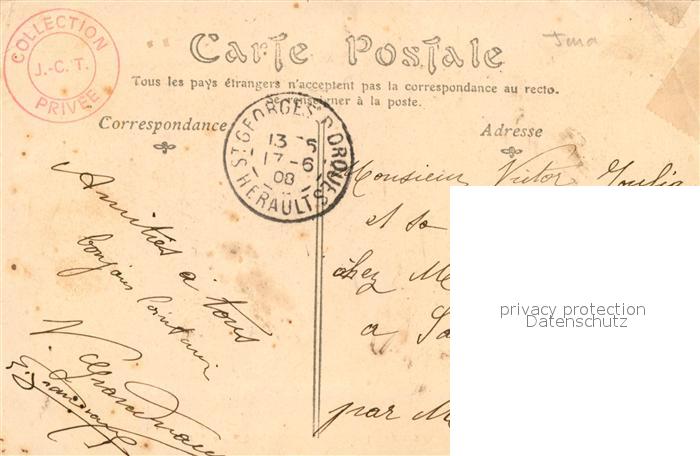 COLLECTION
J.-C. T.
PRIVÉE
Carte Postale
Tous les pays étrangers n'acceptent pas la correspondance au recto.
Se renseigner à la poste.
Correspondance
Adresse
ST GEORGES D'ORQUES
13 - 5
17 - 6
08
HERAULT
Amitiés à tous
bonjour
Monsieur Victor
et sa
chez M
a Sa
par M
privacy protection
Datenschutz